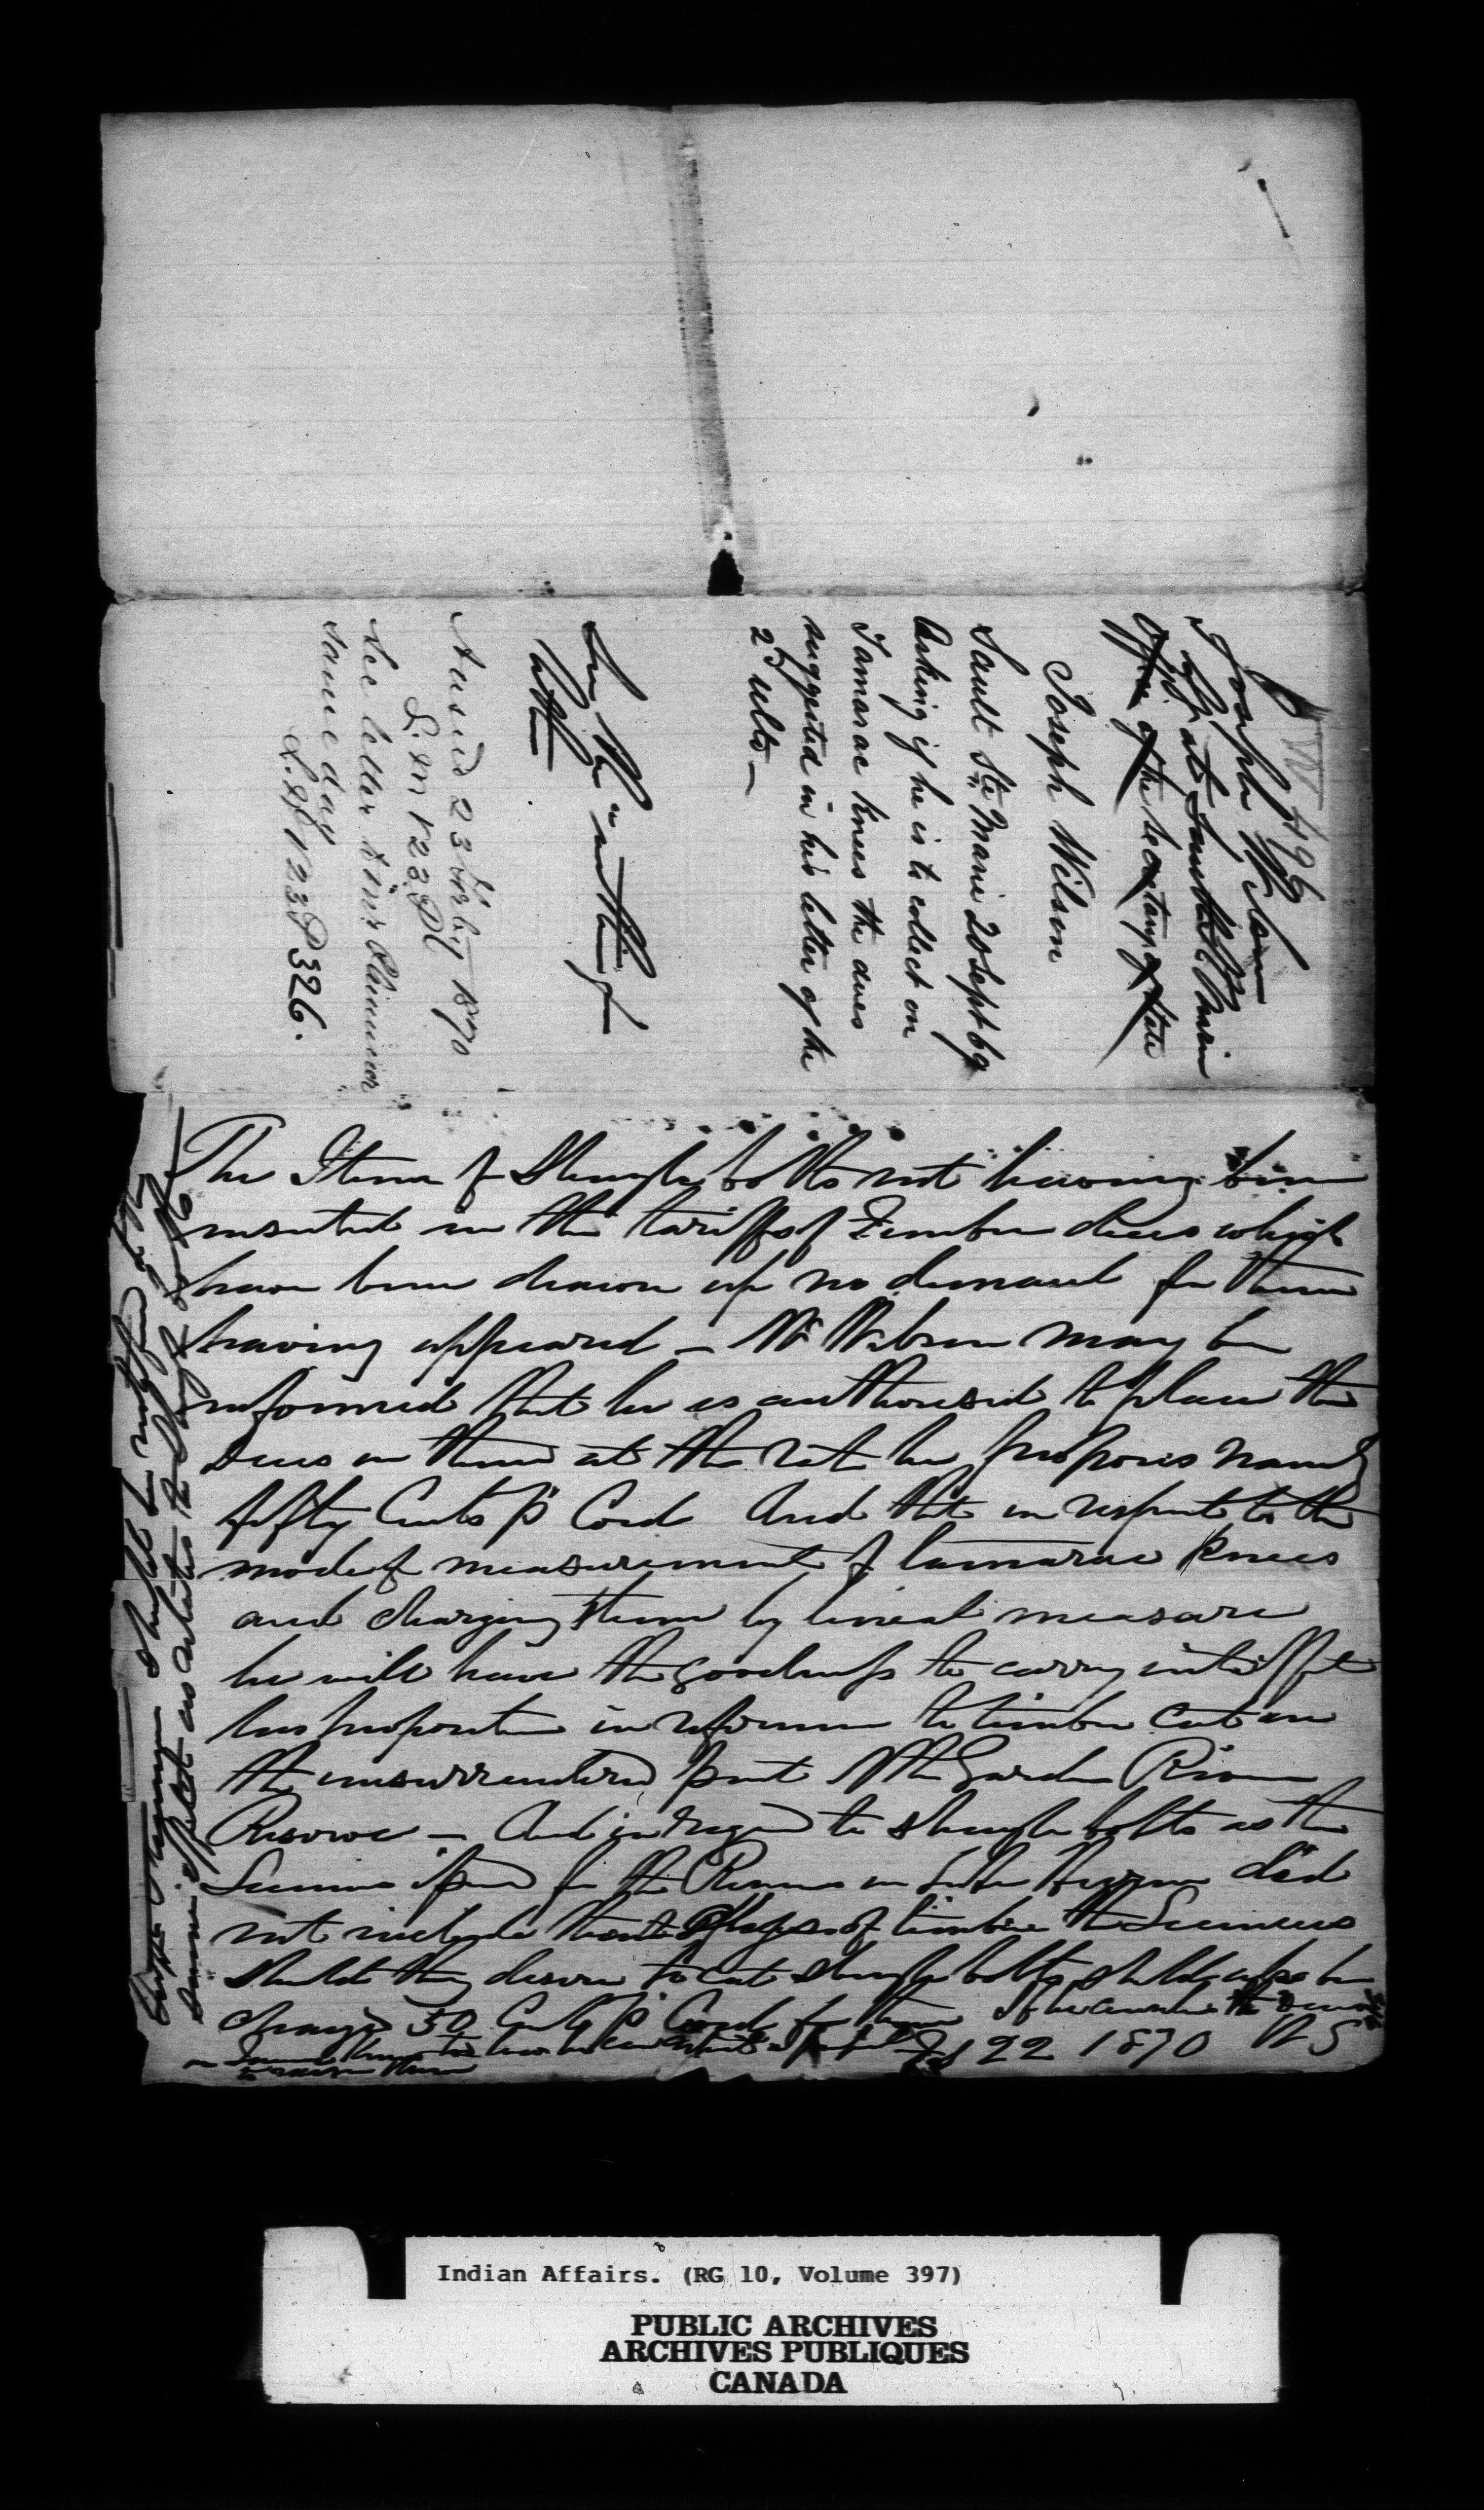 W 496
Joseph Wilson
at Sault Ste Marie
Office of the Secretary of State
Joseph Wilson
Sault Ste Marie 20 Sept 69
Asking if he is to collect on
Tamarac knees the dues
suggested in his letter of the
25 ulto —
Answd 23 Feby 1870
L. B. 123 P
See letter
same day
L. B. 123 P 326.
The Item of Shingle bolts not having been
inserted in the tariff of Timber dues which
have been drawn up no demand for them
having appeared — Mr Wilson may be
informed that he is authorised to place the
dues on them at the rate he proposes namely
fifty Cents p Cord And that in respect to the
mode of measurement of tamarac knees
and charging them by lineal measure
he will have the goodness to carry into effect
his proposition in reference to timber cut on
the unsurrendered part of the Garden River
Reserve — And in regard to shingle bolts as the
License issued for the Reserves in Lake Huron did
not include that of timber the Licensees
should they desire to cut shingle bolts should also be
charged 50 Cents p Cord for them
Feb 22 1870 W S
should be notified
same effect as relates to shingle bolts
Indian Affairs. (RG 10, Volume 397)
PUBLIC ARCHIVES
ARCHIVES PUBLIQUES
CANADA